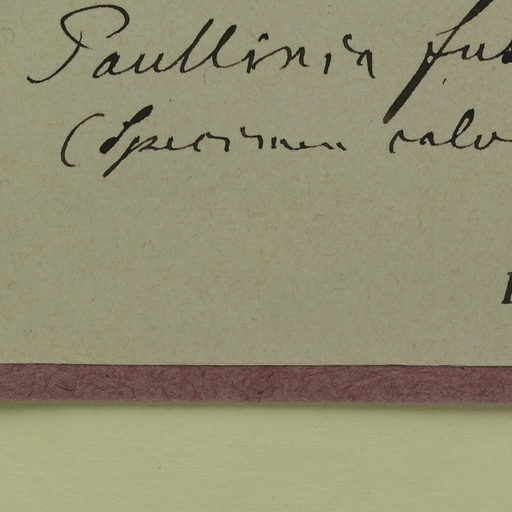 Paullinia fus
(Specimen valv